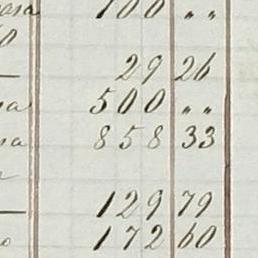 100 " "
29 26
500 " "
858 33
129 79
172 60